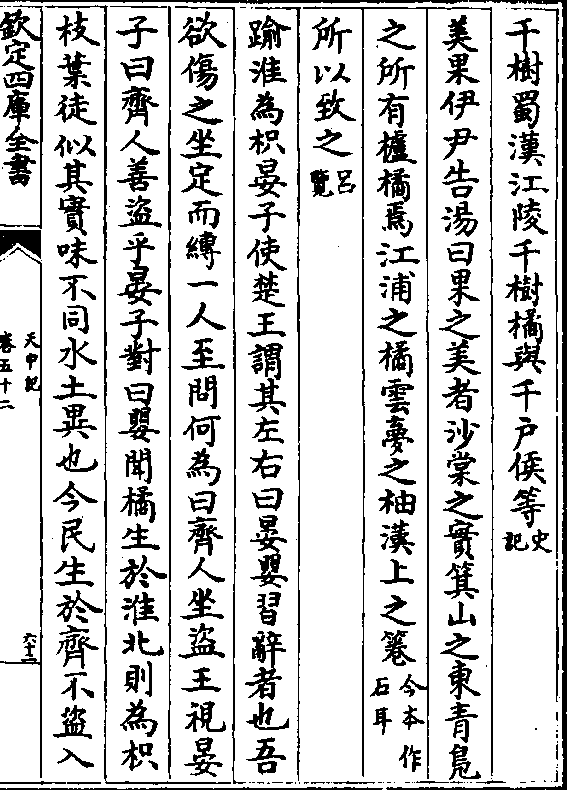 千樹蜀漢江陵千樹橘與千户侯等史記
美果伊尹告湯曰果之美者沙棠之實箕山之東青鳧
之所有櫨橘焉江浦之橘雲夢之柚漢上之箞今本作石耳
所以致之呂覽
踰淮為枳晏子使楚王謂其左右曰晏嬰習辭者也吾
欲傷之坐定而縛一人至問何為曰齊人坐盜王視晏
子曰齊人善盜乎晏子對曰嬰聞橘生於淮北則為枳
枝葉徒似其實味不同水土異也今民生於齊不盜入
欽定四庫全書
天中記
卷五十二
六十二